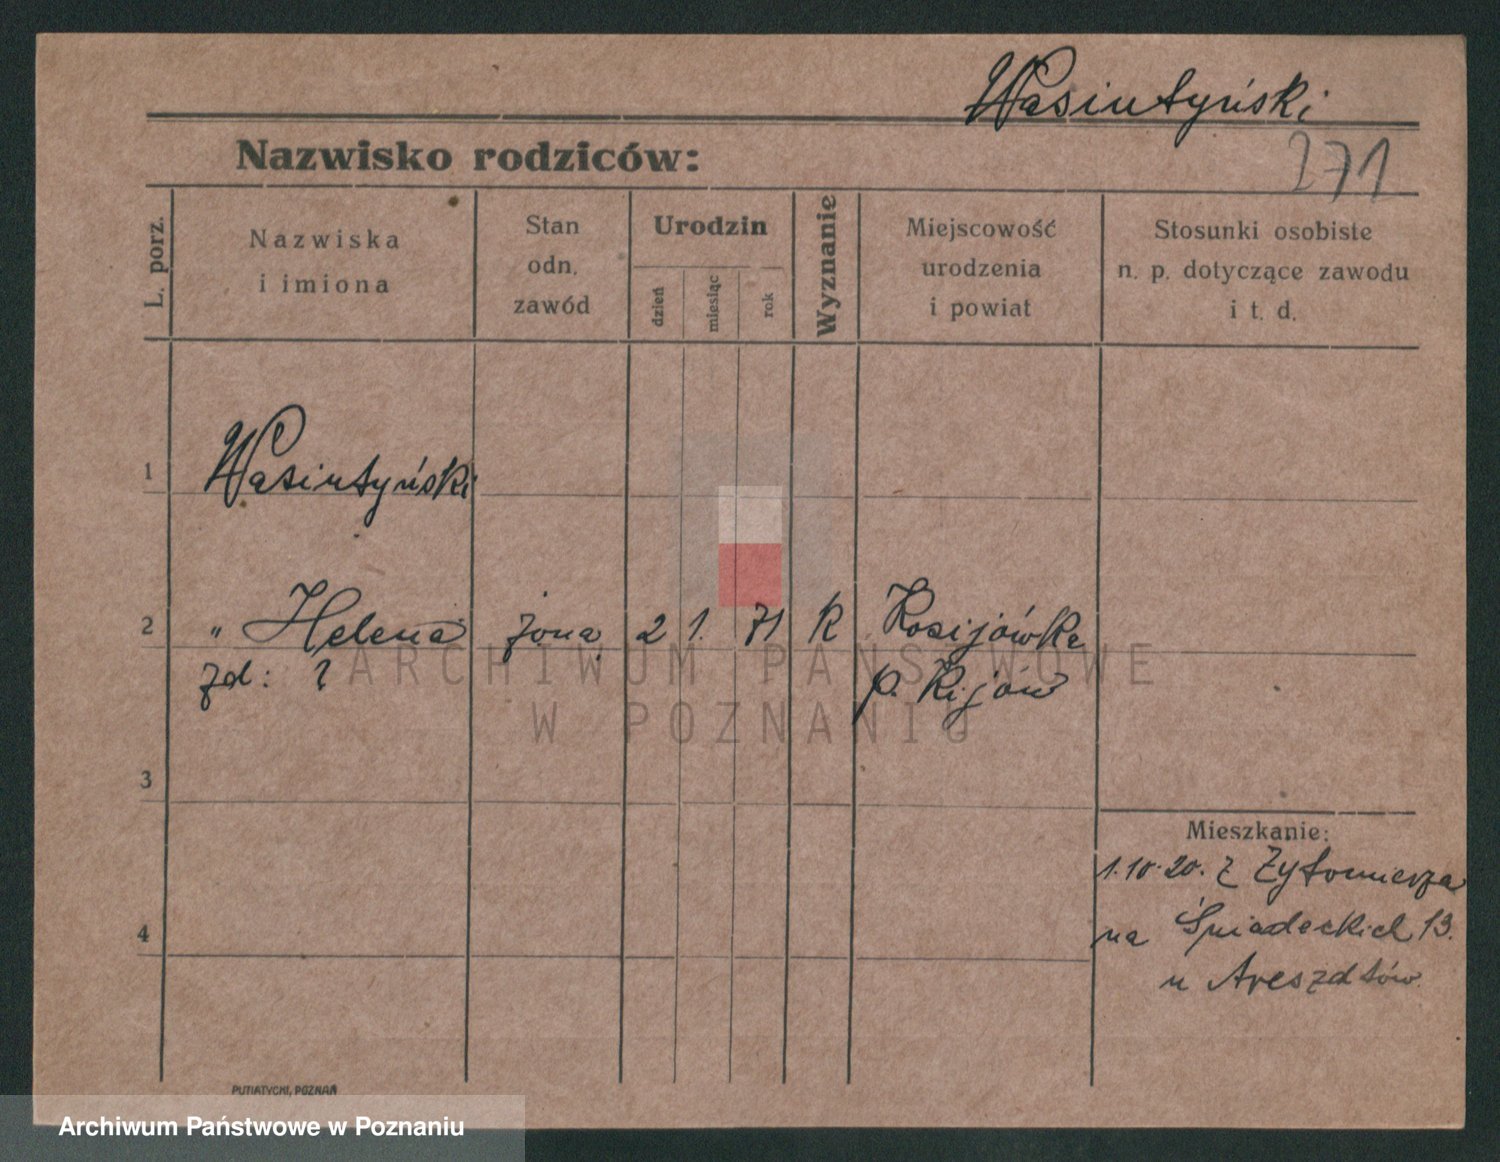 Wasiutyński
Nazwisko rodziców:
271
L. porz.
Nazwiska
i imiona
Stan
odn.
zawód
Urodzin
dzień
miesiąc
rok
Wyznanie
Miejscowość
urodzenia
i powiat
Stosunki osobiste
n. p. dotyczące zawodu
i t. d.
1
Wasiutyński
2 „ Helena żona 2 1. 71 K Rosijówka
zd: ? p. Kijów
ARCHIWUM PAŃSTWOWE
W POZNANIU
3
Mieszkanie:
1.10.20. z Żytomierza
4
na Śniadeckich 13.
u Aresztów
PUTIATYCKI, POZNAŃ
Archiwum Państwowe w Poznaniu